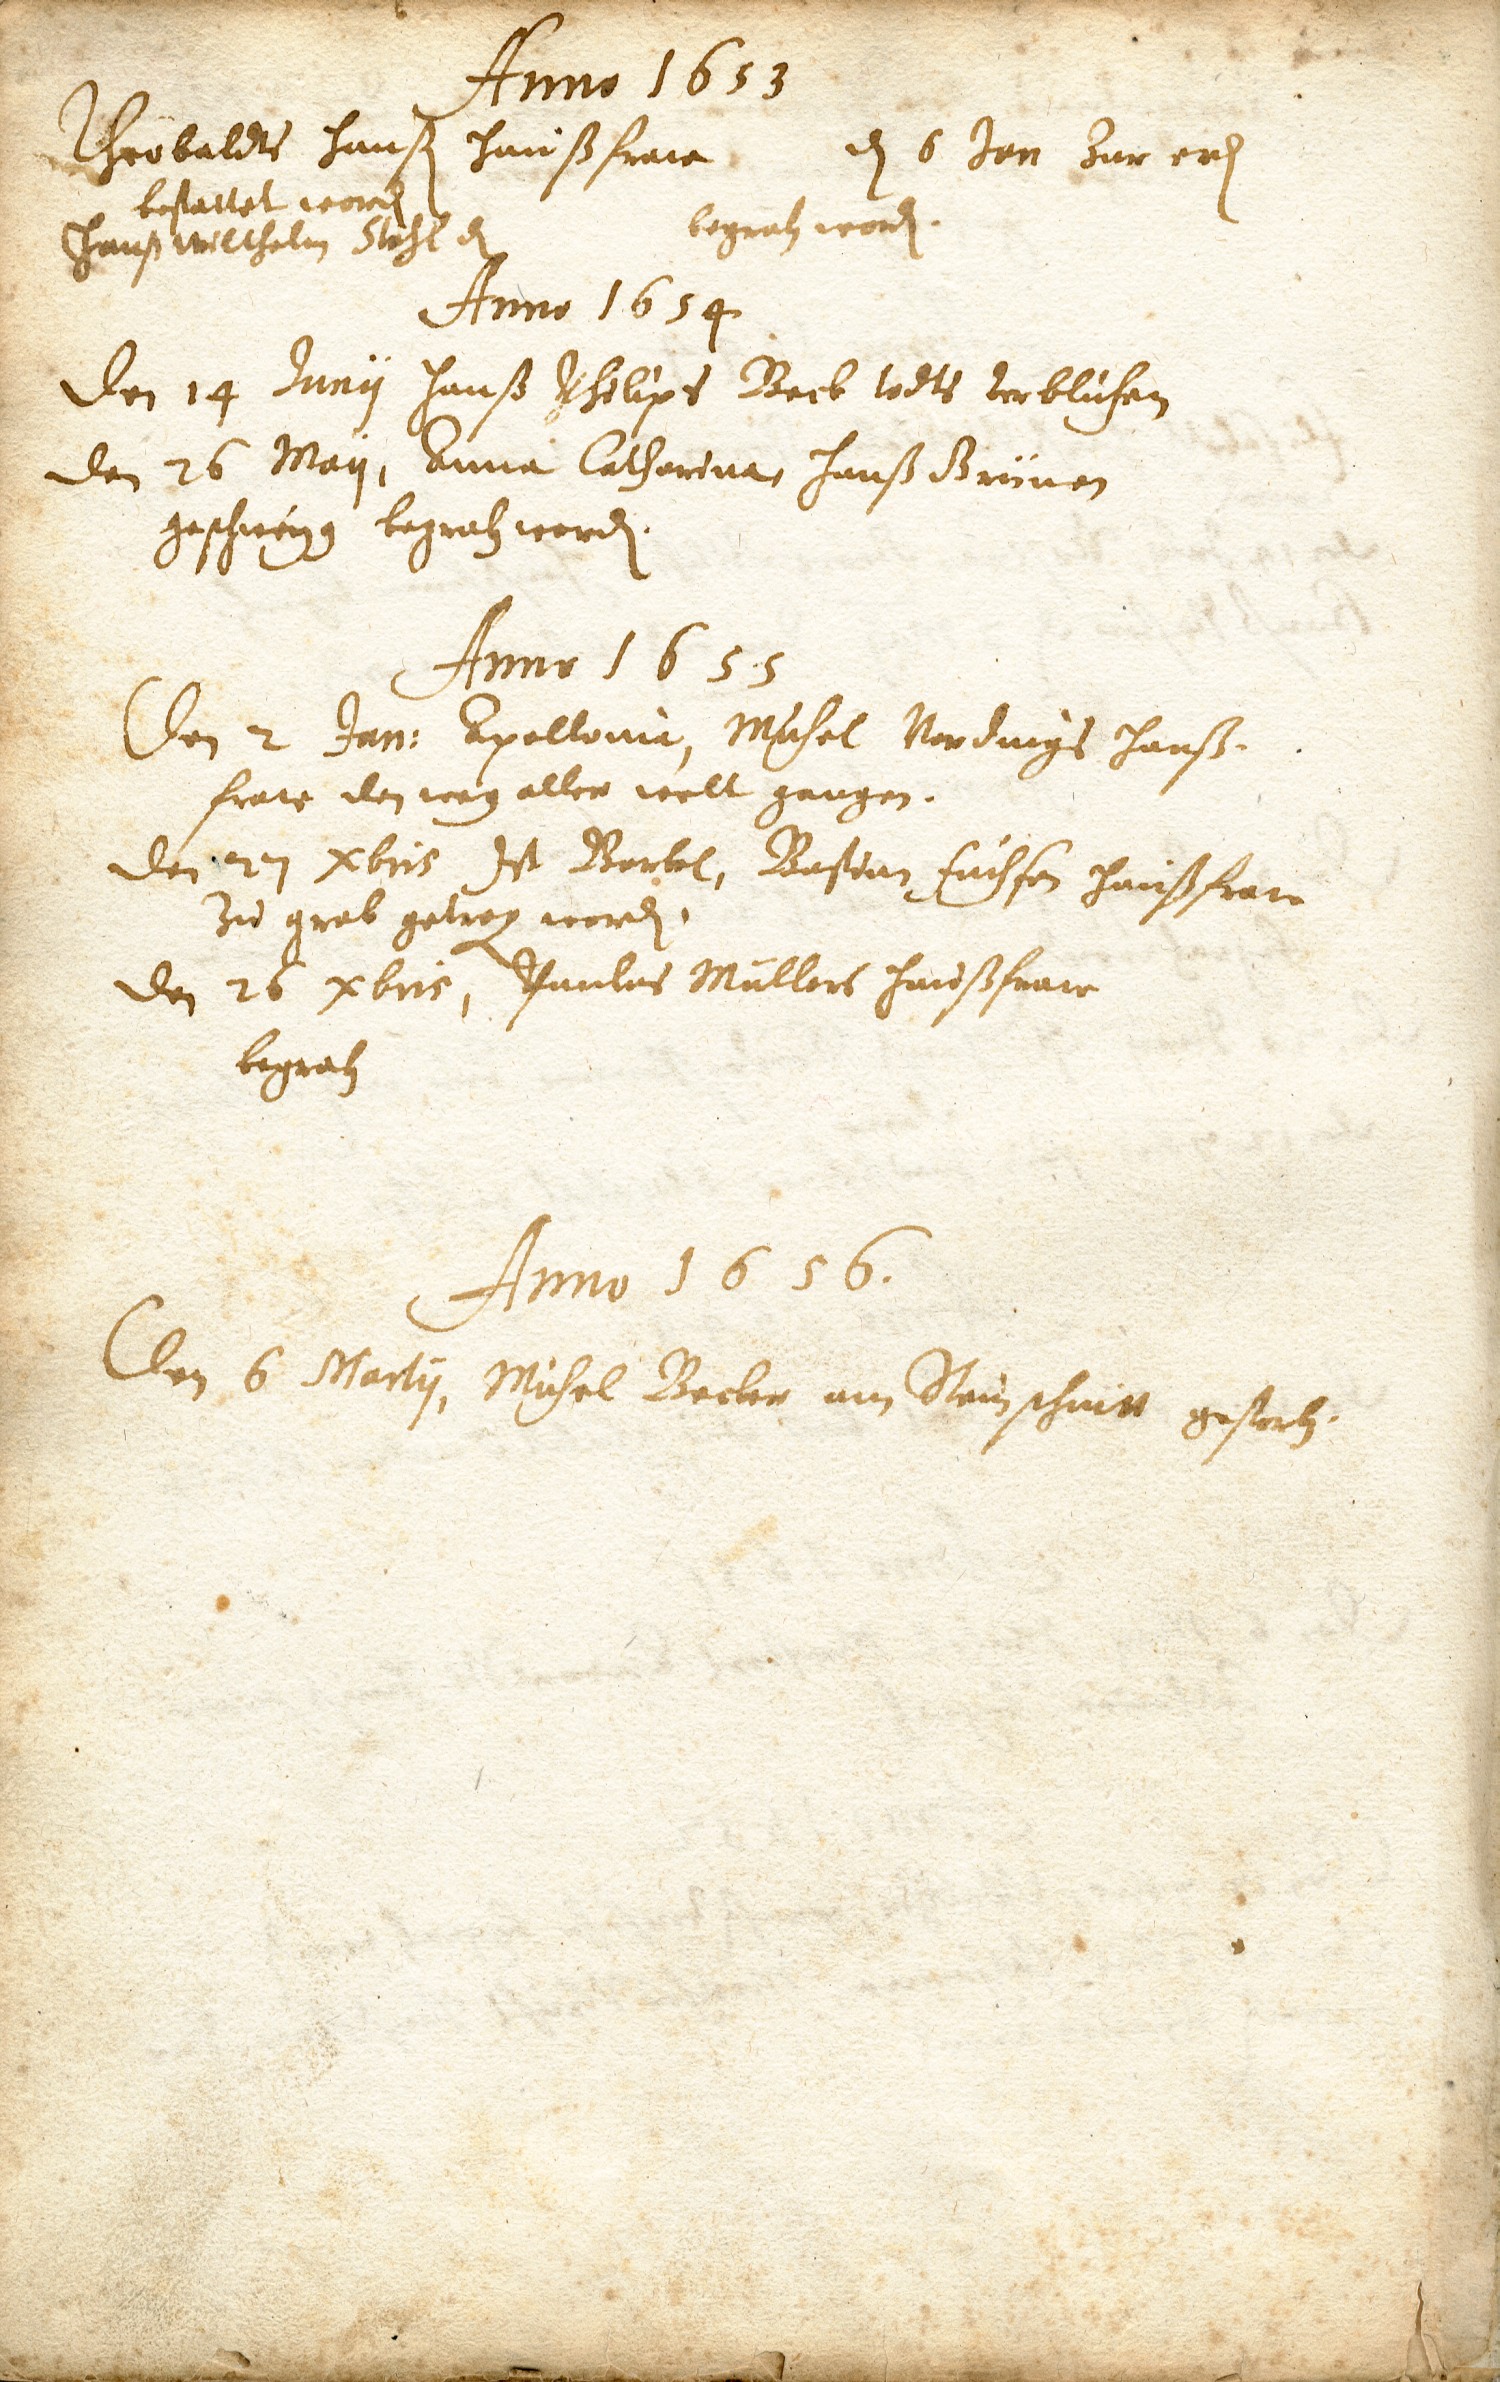 Anno 1653
Theobaldts Hanß Haußfraw d 6 Jan Zur erd
bestattet word
Hanß Willhelm Stohl d begrab word.
Anno 1654
Den 14 Junij Hanß Philips Beck todts verblichen
den 26 Maij, Anna Catharina, Hanß Brünen
geschweyg begrab word.
Anno 1655
Den 2 Jan: Apollonia, Michel Nordings Hauß-
fraw den weg aller welt gangen.
den 27 xbris Ist Barbel, Bastian Fuchsen Haußfraw
Zu grab getrag word.
den 26 xbris, Paulus Müllers Haußfraw
begrab
Anno 1656.
Den 6 Martij, Michel Becker am Steinschnitt gestorb.